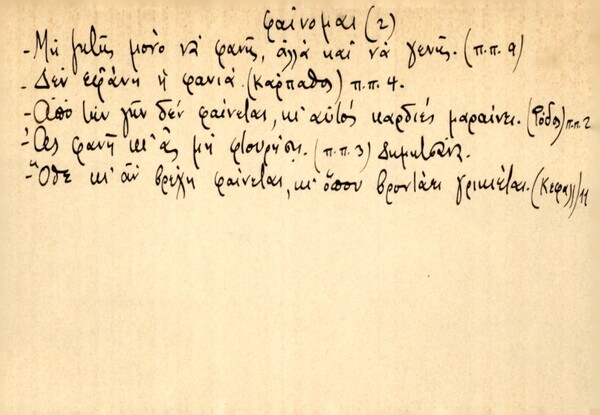 φαίνομαι (2)
- Μὴ ζητῇς μονὸ νὰ φανῇς, ἀλλὰ καὶ νὰ γενῇς. (π.π. 9)
- Δὲν εφάνη ἡ φανιά. (Κάρπαθος) π.π. 4.
- Ἀπὸ τὴν γῆν δὲν φαίνεται, κι' αὐτὸς καρδιὲς μαραίνει. (Ρόδος) π.π. 2
- Ἂς φανῇ κι' ἂς μὴ (π.π. 3)
- Ὅθε κι' ἂν βρέχῃ φαίνεται, κι' ὅπου βροντάει γρικιέται. (Κεφαλλ) 11